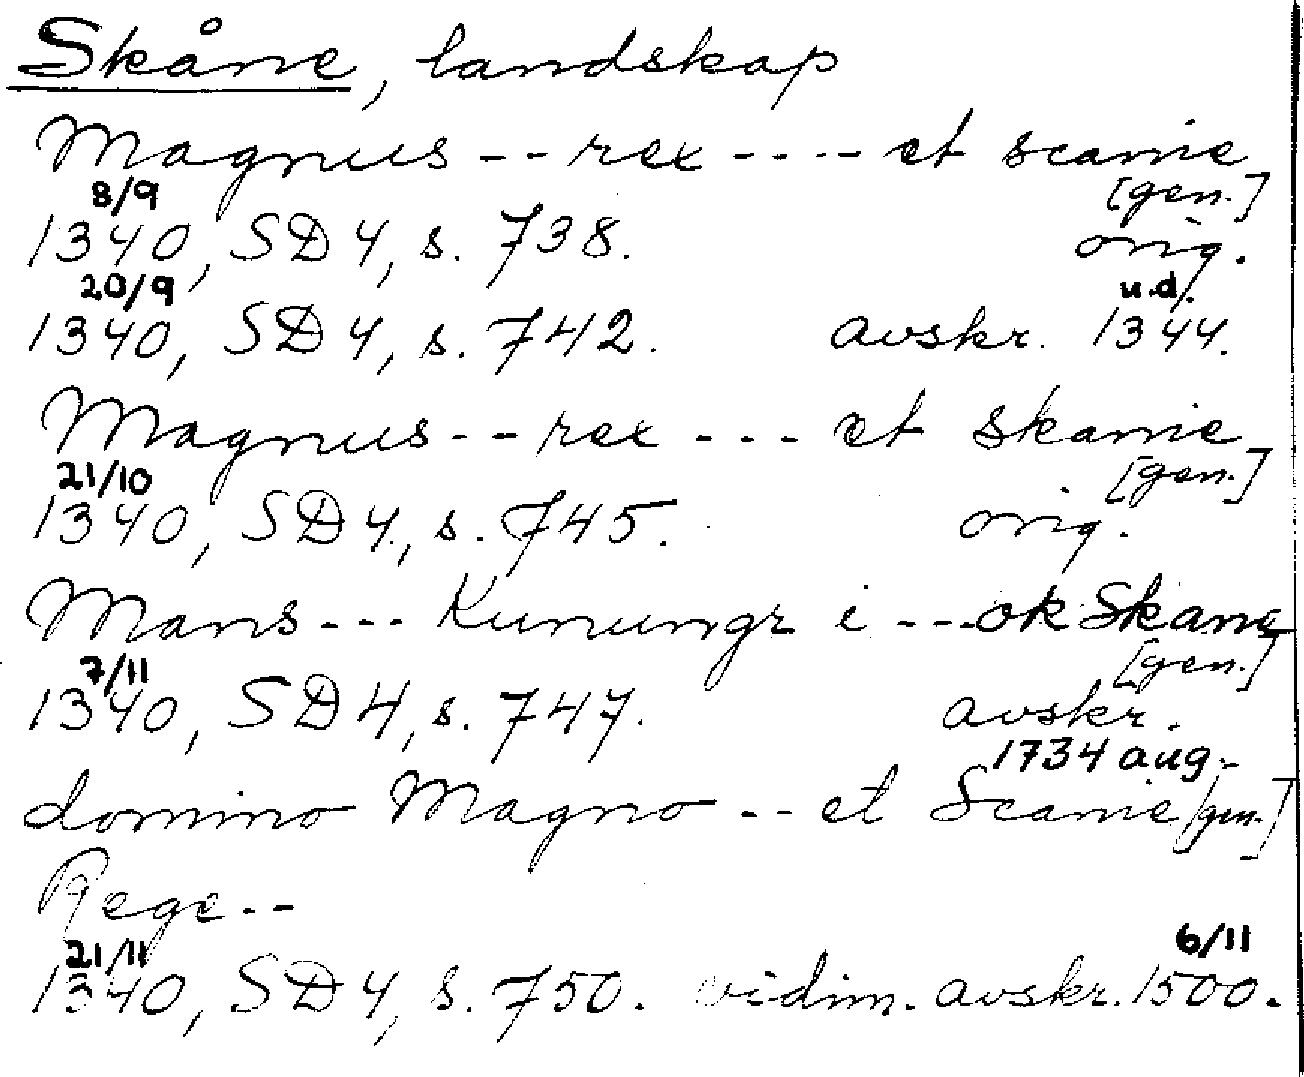 Skåne, landskap
Magnus -- rex ---- et scanie
[gen.]
8/9
1340, SD 4, s. 738. orig.
20/9 u.d.
1340, SD 4, s. 742. avskr. 1344.
Magnus -- rex --- et skanie
[gen.]
21/10
1340, SD 4, s. 745. orig.
Mans --- Kunungr i --- ok Skane
[gen.]
7/11
1340, SD 4, s. 747. avskr.
1734 aug.
domino Magno -- et Scanie [gen.]
Rege --
21/11 6/11
1340, SD 4, s. 750. vidim. avskr. 1500.